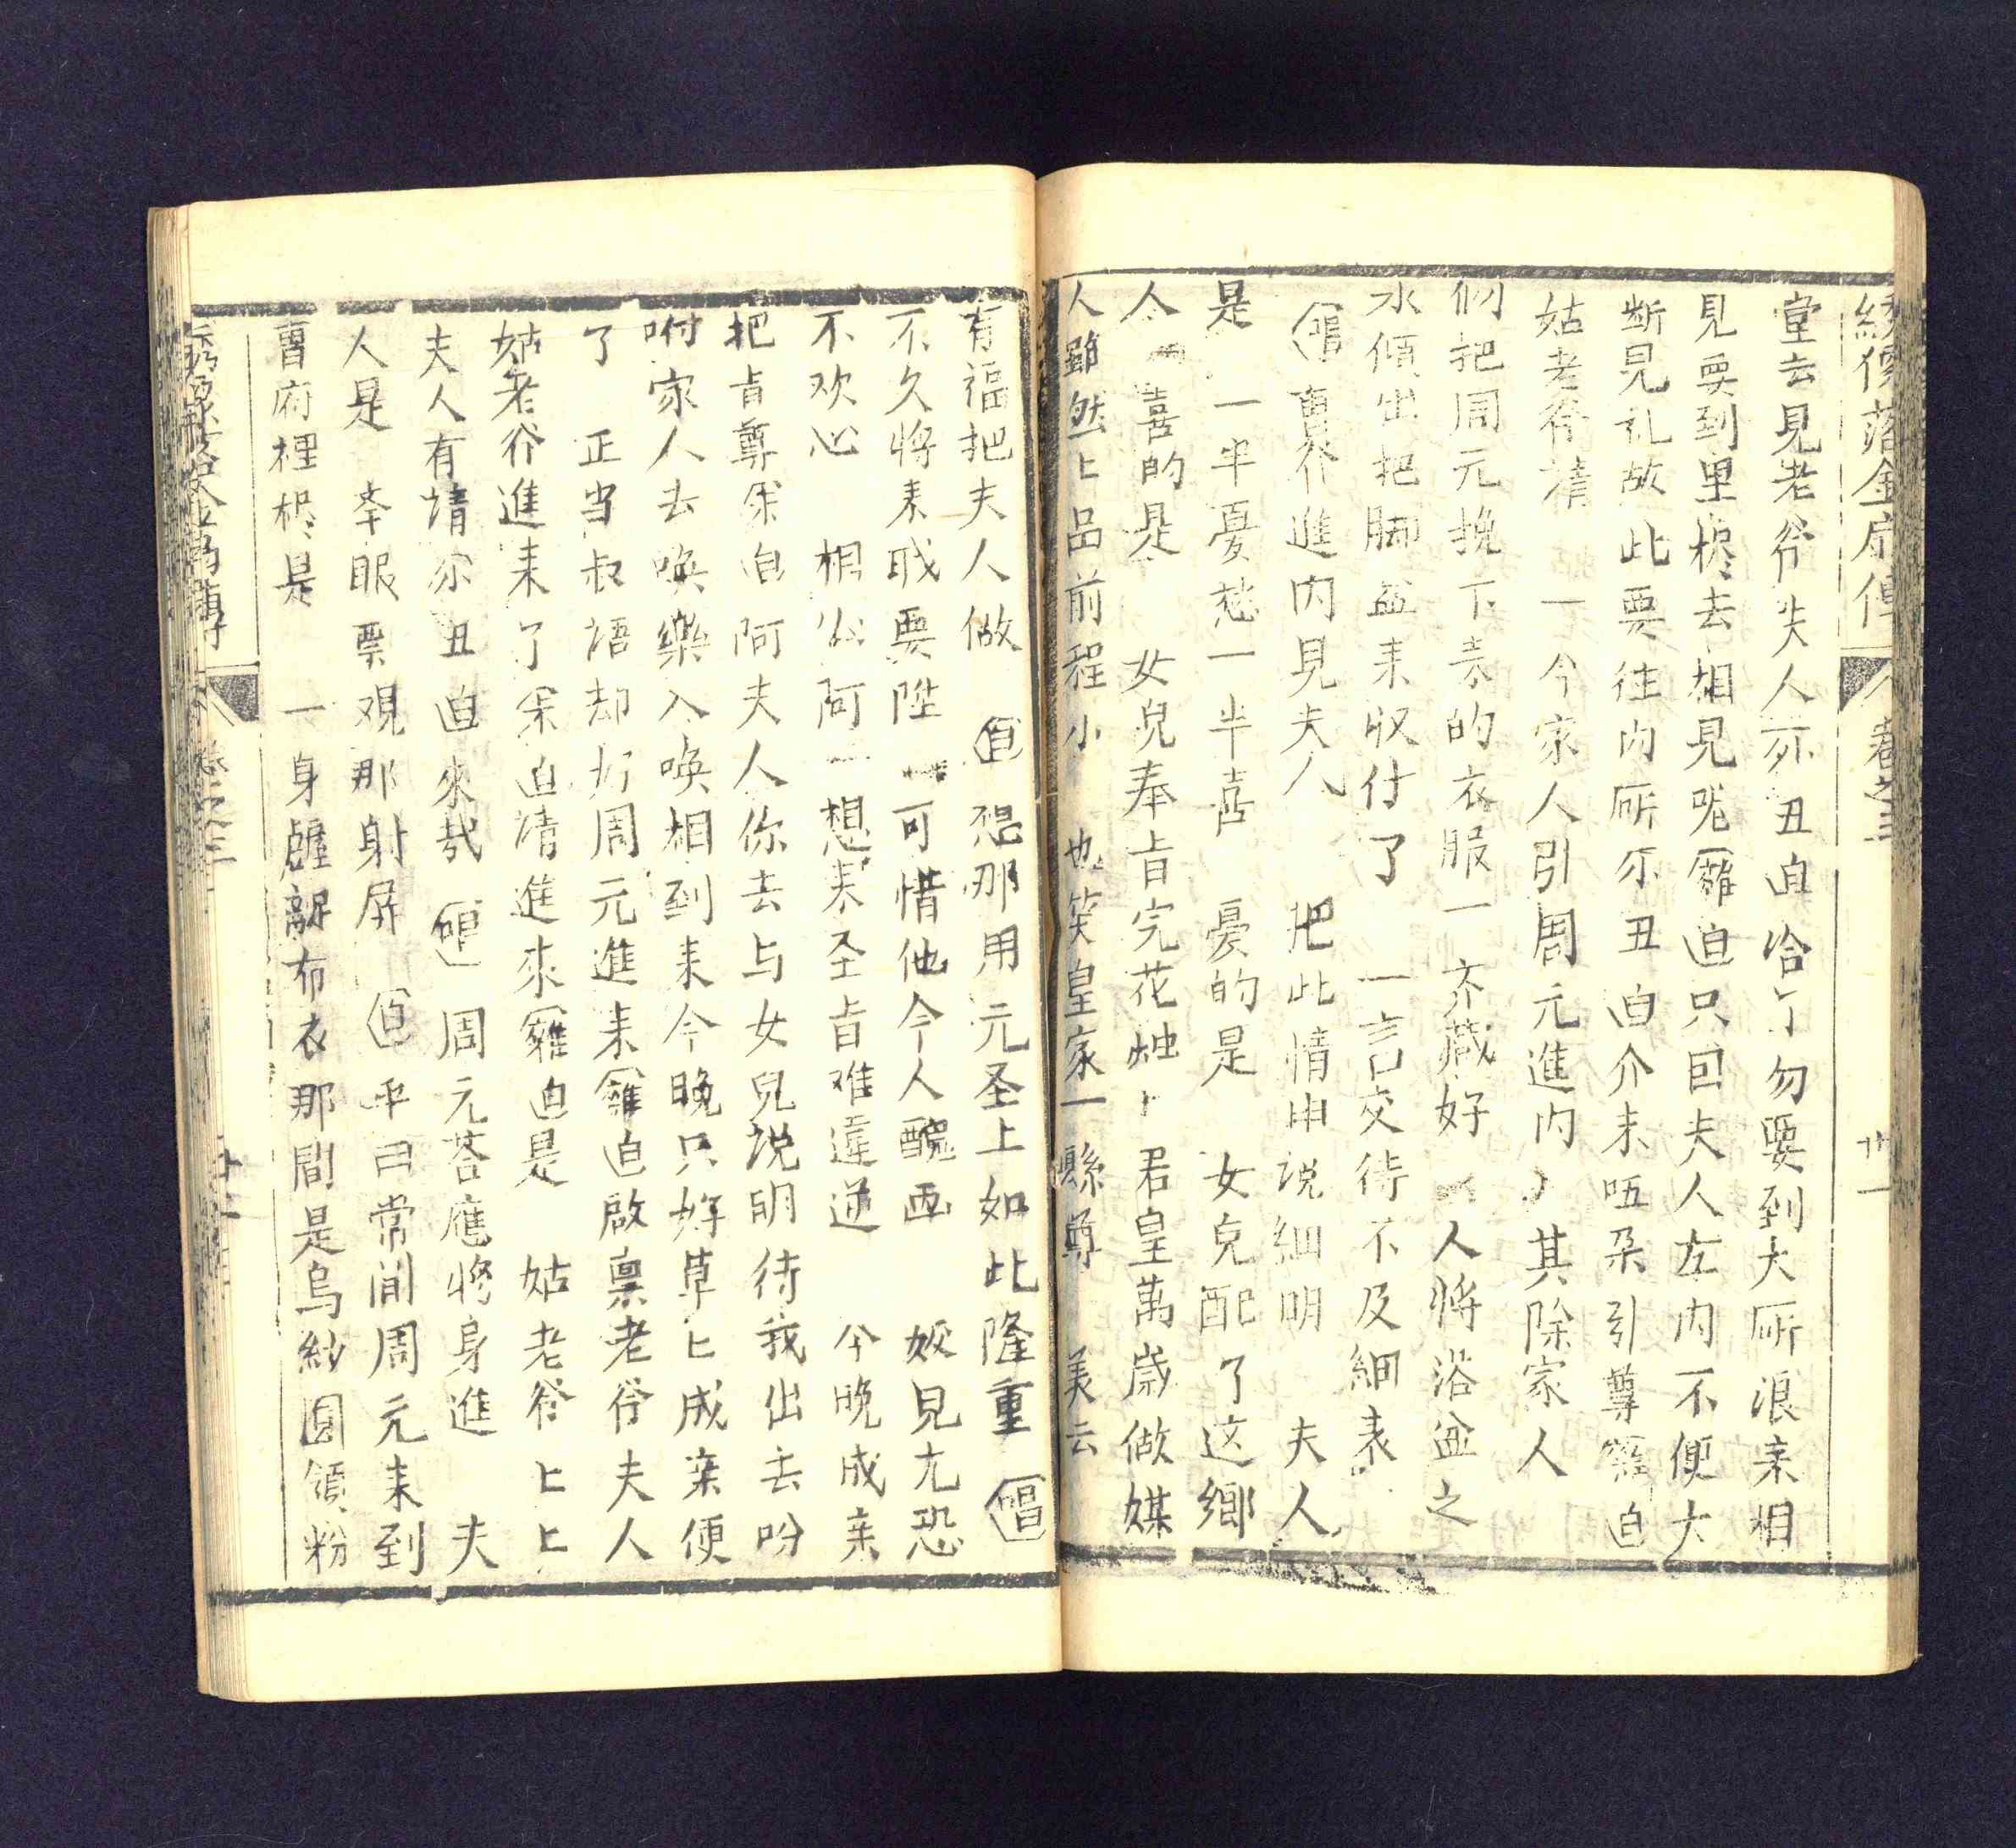 綉像落金扇傳 卷之三 卅一
堂去見老爷夫人尔丑白冾了勿要到大𠩄浪来相
見要到里𣏌去相見㖞雜白只因夫人在内不便大
断見礼故此要往内𠩄尔丑白介来唔朵引尊雜白
姑老爷請 一 今家人引周元進内 其除家人
们把周元挽下来的衣服一齐藏好 人將浴盆之
水傾出把脚盆来収付了 一言交待不及細表
唱 曹爷進内見夫人 把此情由说細明 夫人
是一半憂愁一半喜 憂的是 女児配了这鄉
人 喜的是 女児奉旨完花烛 君皇萬歲做媒
人雖然上品前程小 也笑皇家一縣尊 美云
有福把夫人做 白 想那用元圣上如此隆重 唱
不久將来戝要陞 可惜他今人醜面 姣児尤恐
不欢心 相公阿一想来圣旨难違逆 今晚成亲
把旨尊 外白阿夫人你去与女兒说明待我出去吩
咐家人去唤樂人唤相到来今晚只好草上成亲便
了 正当叔語却好周元進来雜白啟禀老爷夫人
姑老爷進来了外白請進來雜白是 姑老爷上上
夫人有請尔丑白來哉 唱 周元荅應將身進 夫
人是 奉眼票观那射屏 白 平日常间周元来到
曹府裡𣏌是 一身襤䙓布衣那間是烏紗圓領粉